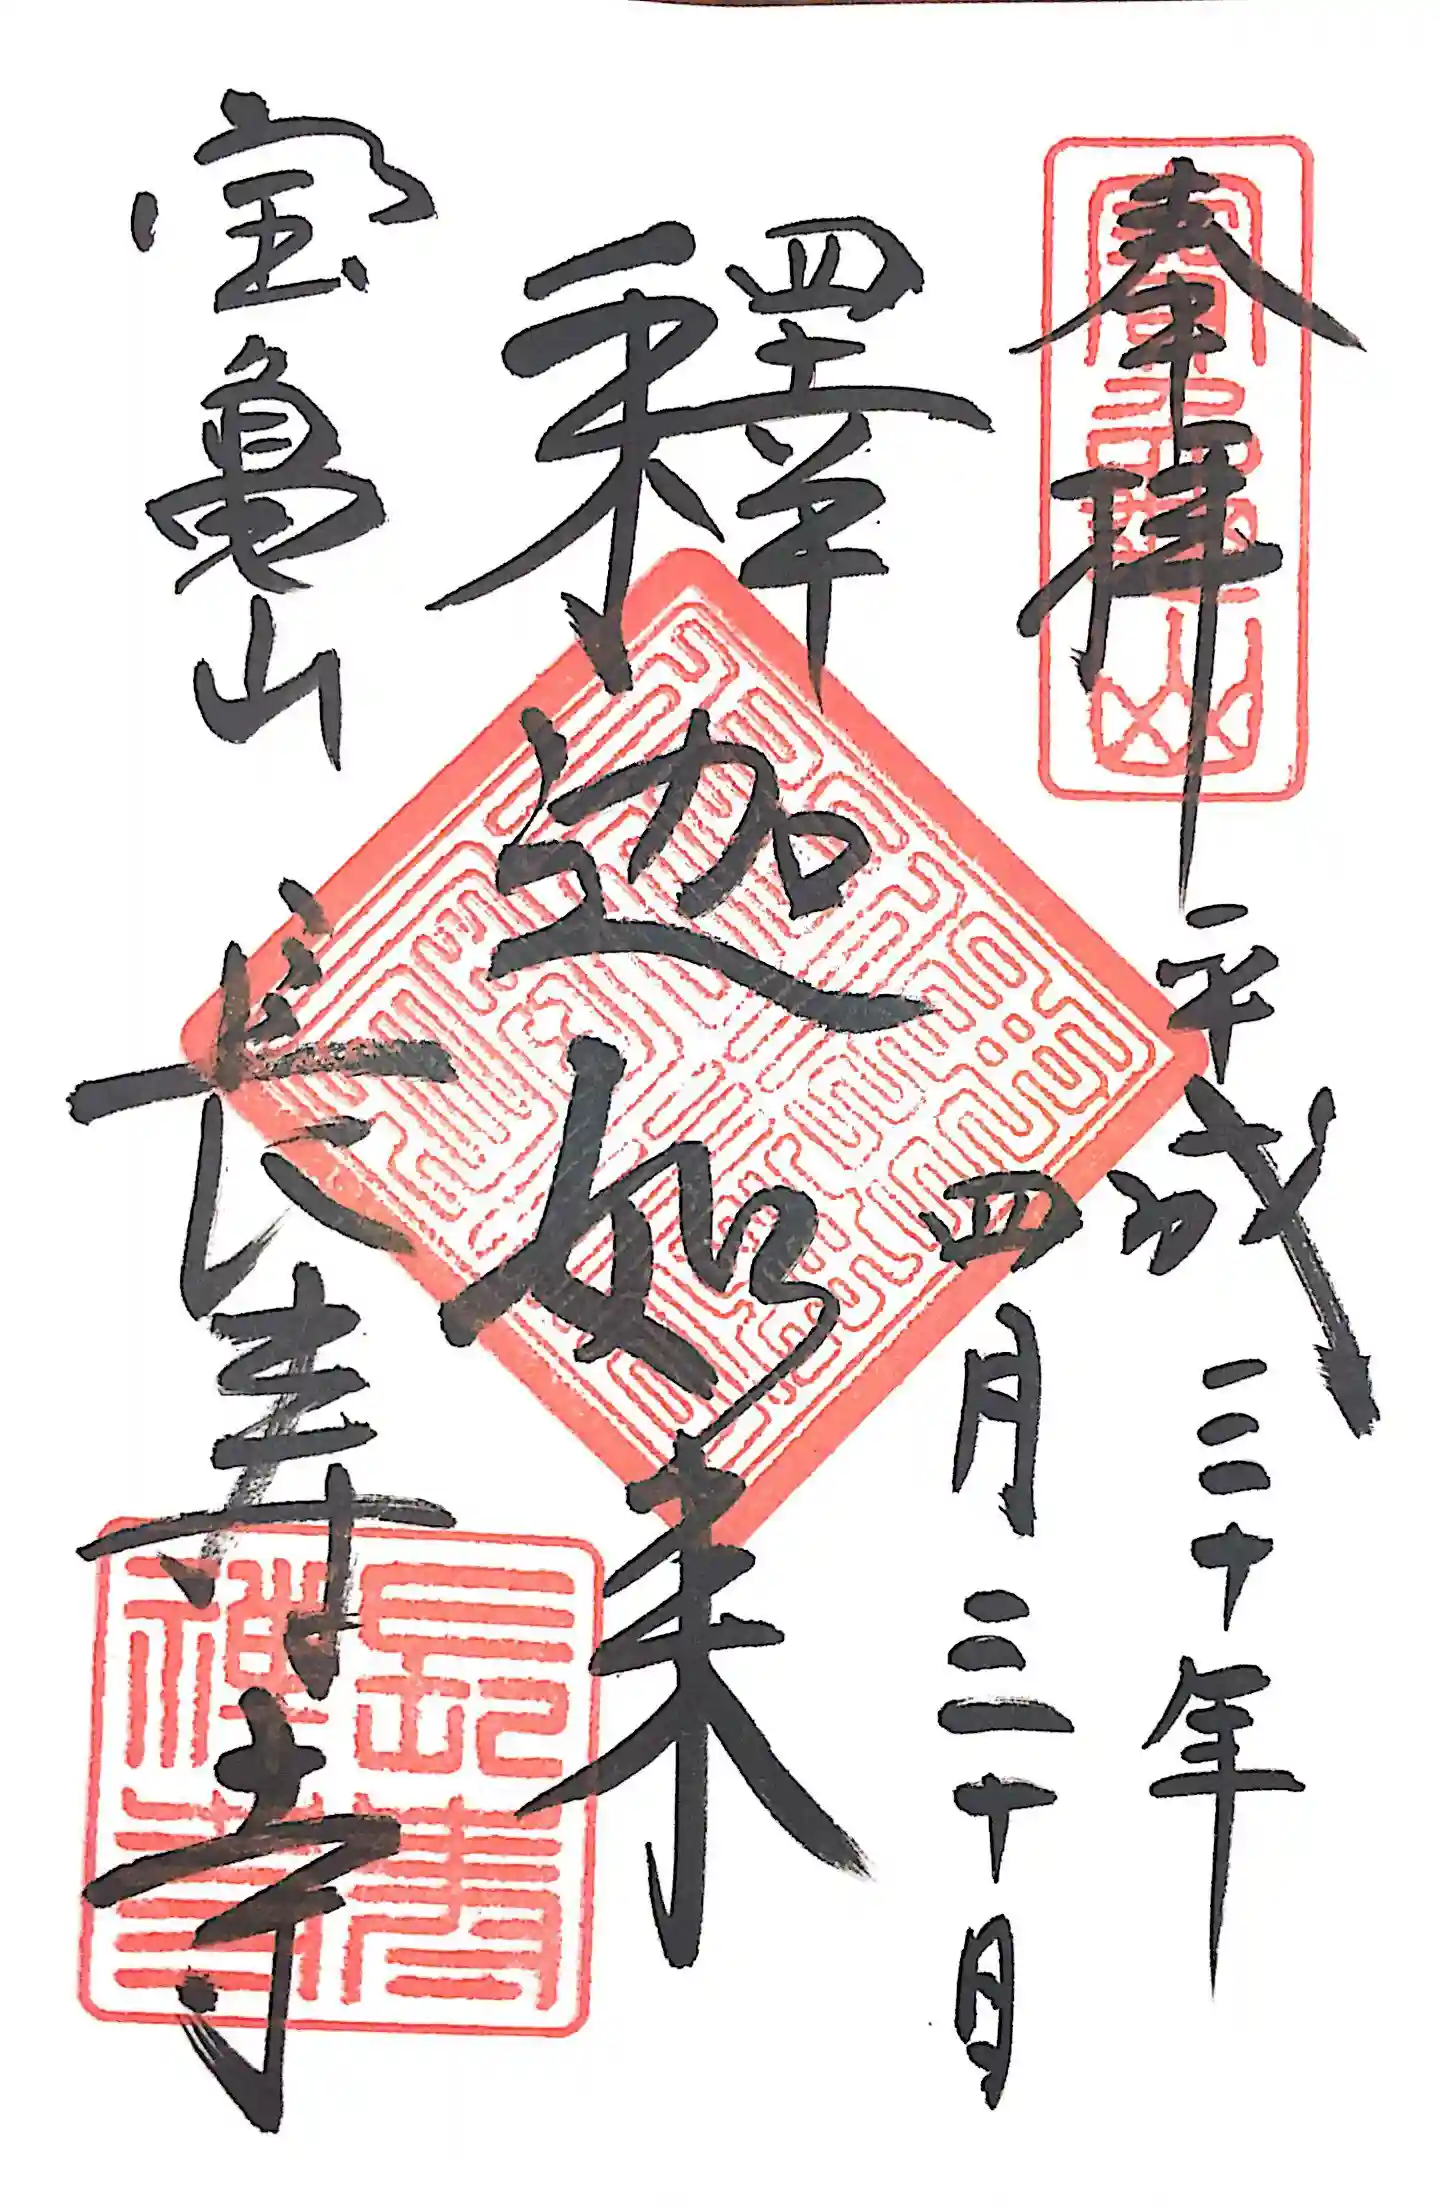 奉拝
平成三十年
四月三十日
釋迦如来
宝亀山
長寿寺